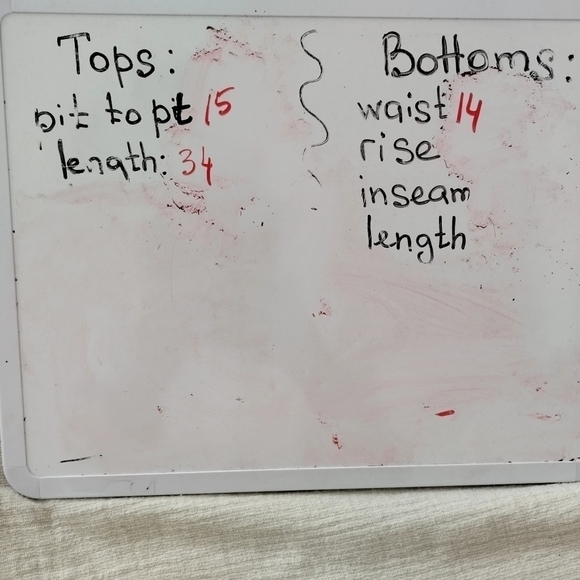 Tops:
pit to pt 15
length: 34
Bottoms:
waist 14
rise
inseam
length